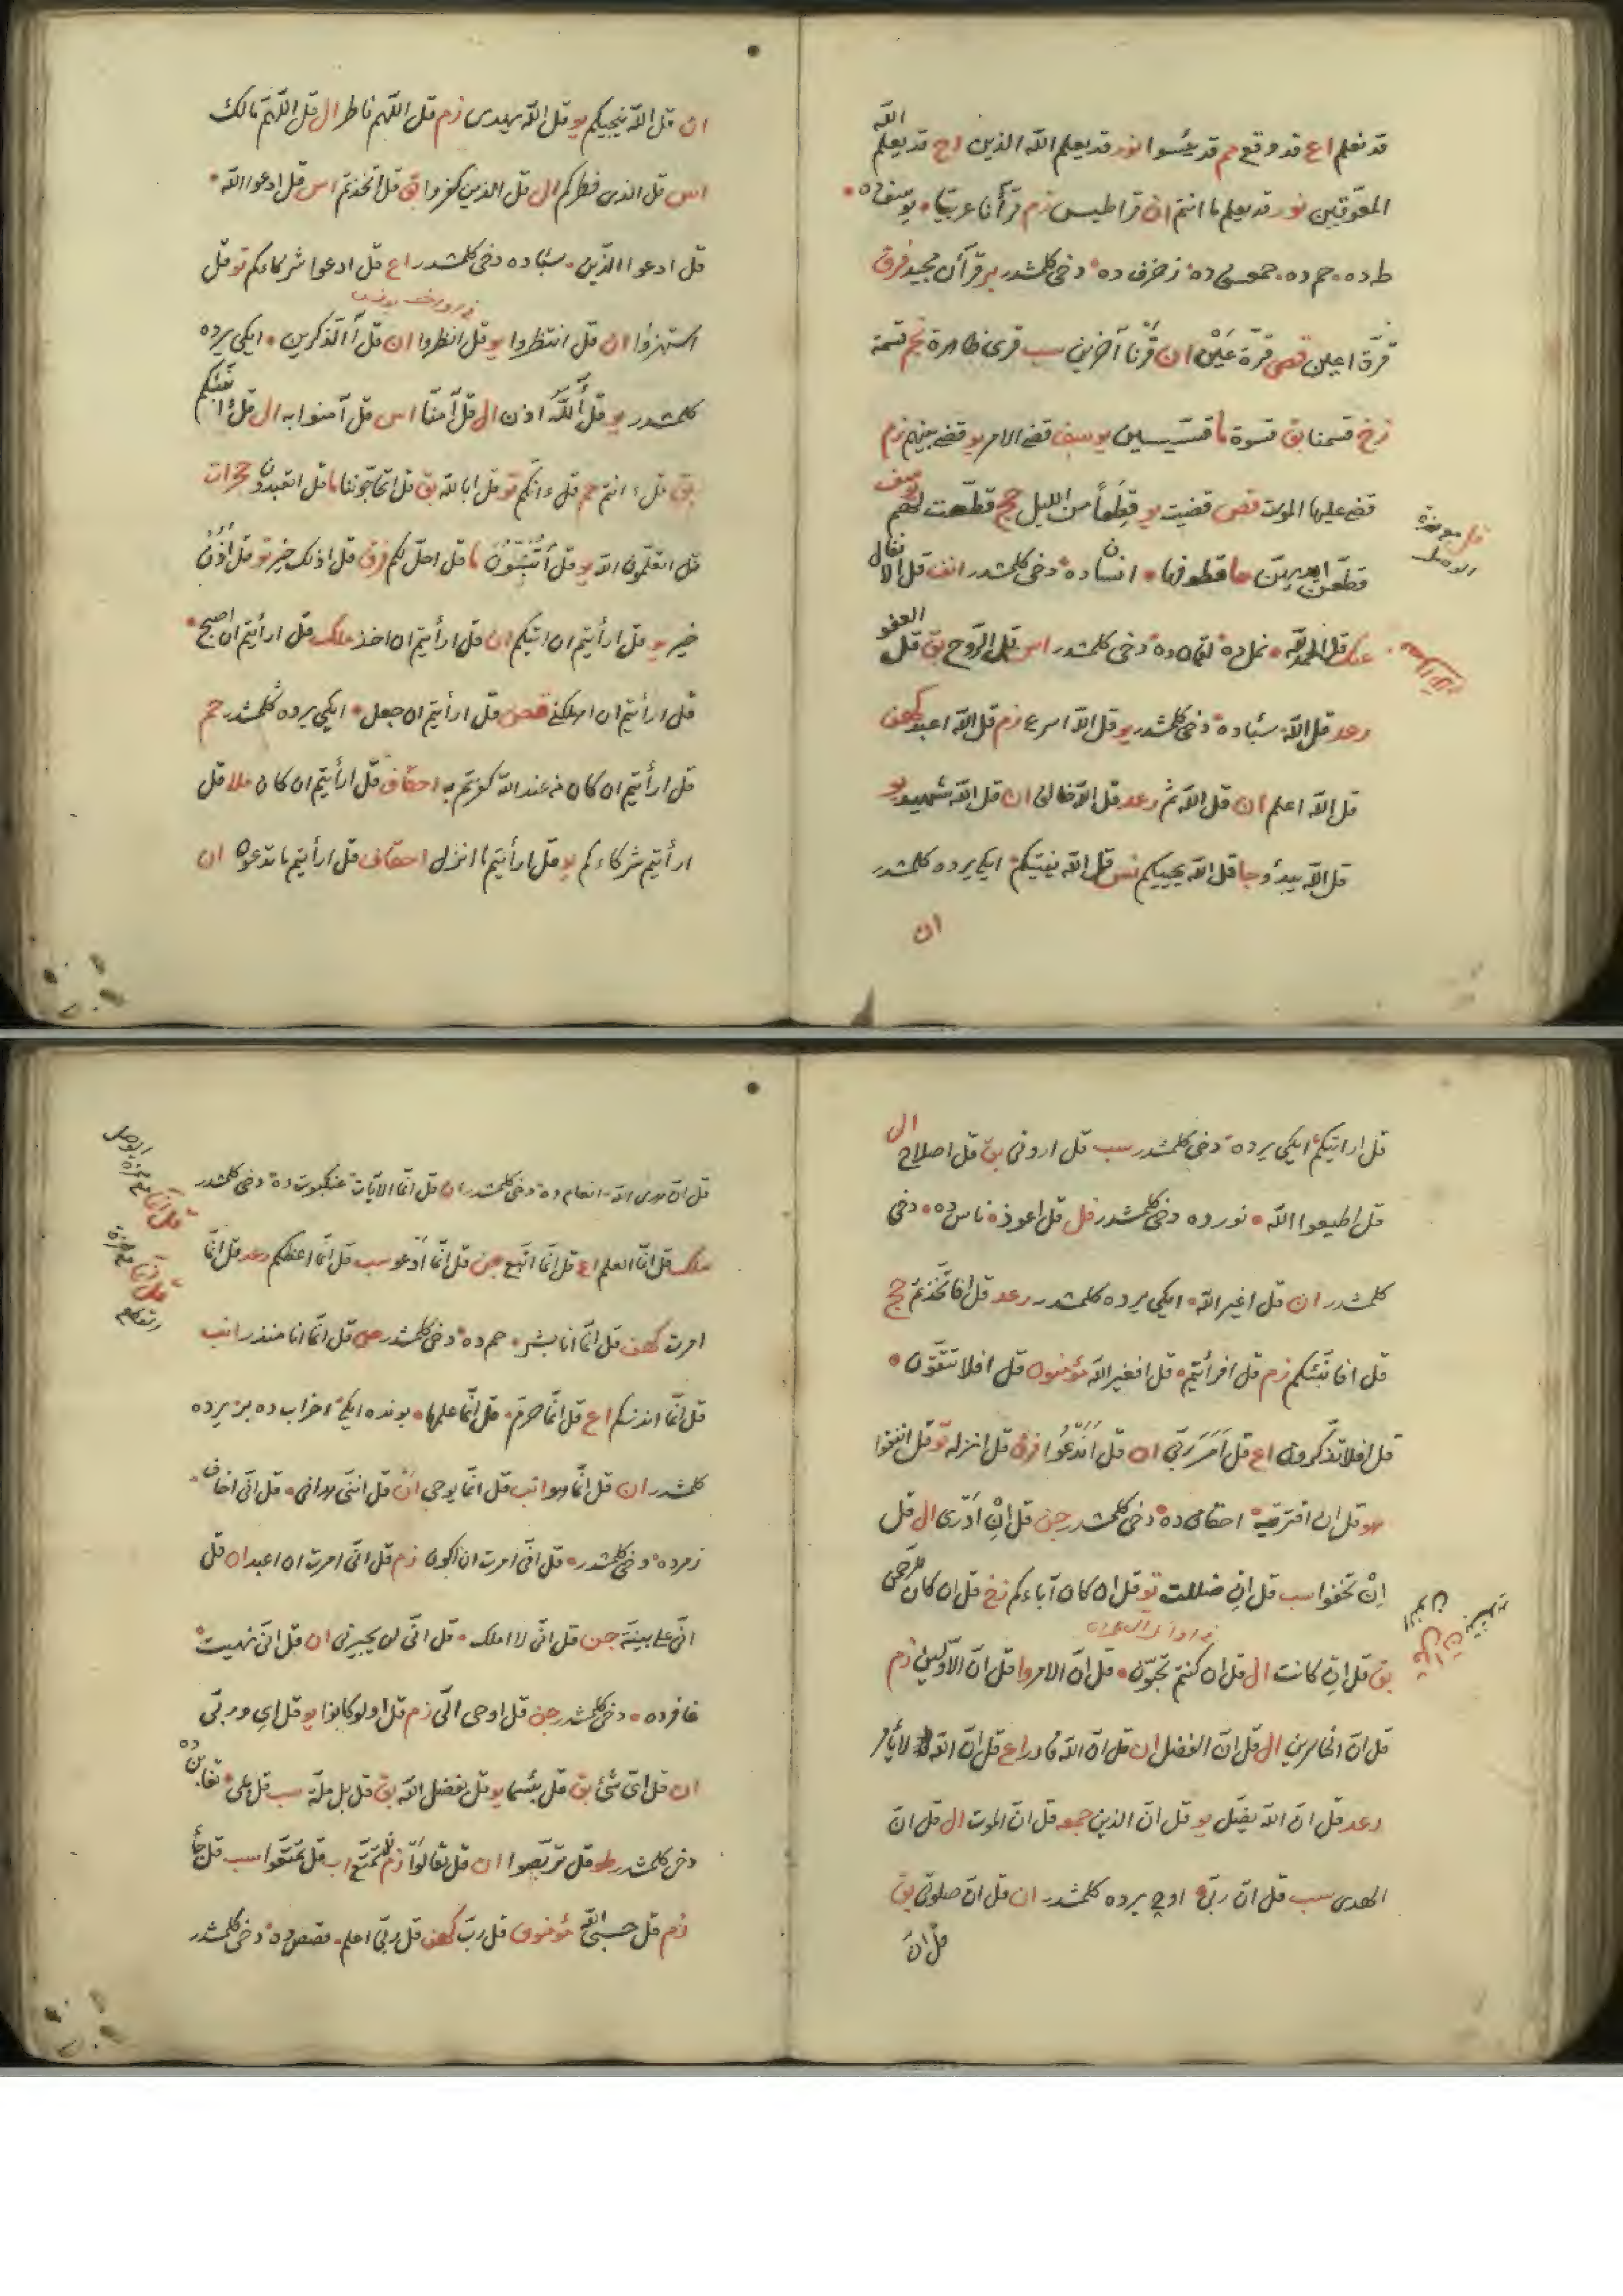 قد نعلم اع قد وقع حم قد يئسوا نور قد يعلم الله الذين اح قد يعلم الله
المعوّقين نور قد يعلم ما انتم ان قراطيس زم قرأنا عربيّا • يوسف ده •
طه ده • حم ده • حمعسق ده • زخرف ده • دخى كلمشدر بر قرأن مجيد فرق
قرّة اعين قص قرة عَيْن ان قرْنا آخرين سب قرى ظاهرة نجم قسمة
زخ قسمنا بق قسوة ما قسّيسين يوسف قضى الامر يو قضى بينهم زم
قضى عليها الموت قص قضيت يو قِطَعاً من الليل حج قطّعت لهم يوسف
قطّعن ايديهنّ حا قطوفها • انسان ده • دخى كلمشدر انف قل الانفال
عنك قل الحمد لله • نمل ده • لقمان ده • دخى كلمشدر اس قل الرّوح بق قل العفو
رعد قل الله • سبأ ده • دخى كلمشدر يو قل الله اسرع زم قل الله اعبد كهف
قل الله اعلم ان قل الله ثم رعد قل الله خالق ان قل الله شهيد يو
قل الله يبدؤ جا قل الله يحييكم نس قل الله يفتيكم • ايكى يرده كلمشدر
ان
ان قل الله ينجيكم يو قل الله يهدى زم قل اللّهم فاطر ال قل اللّهمّ مالك
اس قل الذى فطركم ال قل الذين كفروا بق قل اتخذتم اس قل ادعوا الله •
قل ادعوا الذّين • سبأ ده دخى كلمشدر اع قل ادعوا شركاءكم تو قل
استهزؤا ان قل انتظروا يو قل انظروا ان قل آالذكرين • ايكى يرده
كلمشدر يو قل أللّهُ اذن ال قل آمنّا اس قل آمنوا به ال قل ءانبّئكم
بق قل ءانتم حم قل ءانّكم تو قل ابالله بق قل اتحاجّوننا ما قل اتعبدون حجرات
قل اتعلّمون الله يو قل أَتُنَبِّئُونَ ما قل احلّ لكم فرق قل اذلك خير تو قل اُذُنُ
خير يو قل ارأيتم ان اتيكم ان قل ارأيتم ان اخذ ملك قل ارأيتم ان اصبح •
قل ارأيتم ان اهلكنى قصص قل ارأيتم ان جعل • ايكى يرده كلمشدر حم
قل ارأيتم ان كان من عند الله كفرتم به احقاف قل ارأيتم ان كان ملا قل
ارأيتم شركاءكم يو قل ارأيتم ما انزل احقاف قل ارأيتم ما تدعون ان
قل ارايتكم • ايكى يرده • دخى كلمشدر سب قل ارونى بق قل اصلاح ال
قل اطيعوا الله • نور ده دخى كلمشدر فل قل اعوذ • ناس ده • دخى
كلمشدر ان قل اغير الله • ايكى يرده كلمشدر رعد قل افاتّخذتم حج
قل افانبّئكم زم قل افرأيتم • قل افغير الله مؤمنون قل افلا تتّقون •
قل افلا تذكّرون اع قل اَمَرَ ربّى ان قل اَنَدْعُوا فرق قل انزله تو قل انفقوا
هو قل ان افتريته • احقاف ده • دخى كلمشدر جن قل اِنْ اَدْرى ال قل
اِنْ تخفوا سب قل اِن ضللت تو قل ان كان آباءكم زخ قل ان كان للرّحمن
بق قل اِن كانت ال قل ان كنتم تحبّون • قل انّ الامر وا قل انّ الاوّلين زم
قل انّ الخاسرين ال قل انّ الفضل ان قل انّ الله قادر اع قل انّ الله لا يأمر
رعد قل انّ الله يضلّ يو قل انّ الذين جمعه قل انّ الموت ال قل انّ
الهدى سب قل انّ ربّى • اوچ يرده كلمشدر ان قل انّ صلوتى بق
قل انّ
قل انّ هدى الله • انعام ده • دخى كلمشدر ان قل انّما الآيات • عنكبوت ده • دخى كلمشدر
ملك قل انّما العلم اع قل انّما اتّبع جن قل انّما اَدْعو سب قل انّما اعظكم رعد قل انّما
امرت كهف قل انّما انا بشر • حم ده • دخى كلمشدر ص قل انّما انا منذر انب
قل انّما انذركم اع قل انّما حرّم • قل انّما علمها • بونده ايكى • احزاب ده بر يرده
كلمشدر ان قل انّما هو انب قل انّما يوحى ان قل انّنى هدانى • قل انّى اخاف •
زمر ده • دخى كلمشدر • قل انّى امرت ان اكون زم قل انّى امرت ان اعبد ان قل
انّى على بيّنة جن قل انّى لا املك • قل انّى لن يجيرنى ان قل انّى نهيت •
غافر ده • دخى كلمشدر جن قل اوحى الىّ زم قل اولو كانوا يو قل اى وربّى
ان قل اىّ شئ بق قل بئسما يو قل بفضل الله بق قل بل ملّة سب قل بلى • تغابن ده
دخى كلمشدر طو قل تربّصوا ان قل تعالَوْا زم قل تمتّع اب قل تمتّعوا سب قل جاء
زم قل حسبى الله مؤمنون قل ربّ كهف قل ربّى اعلم • قصص ده • دخى كلمشدر